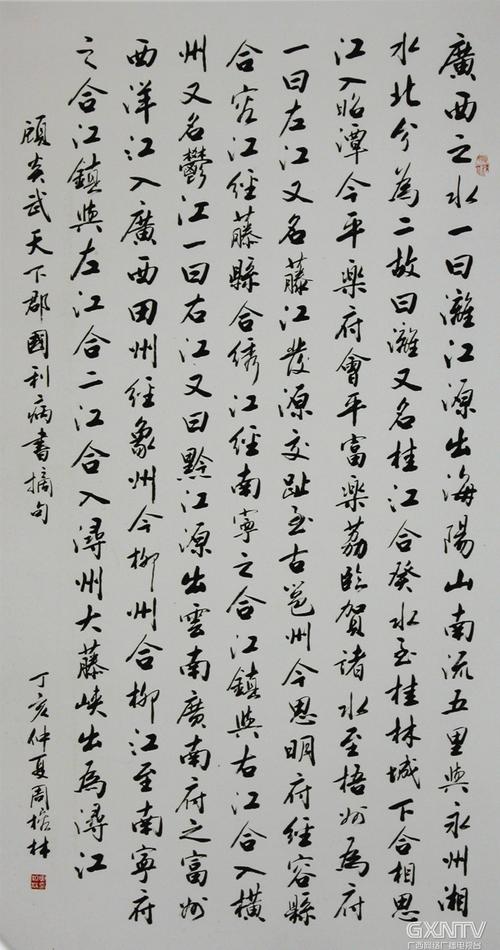 廣西之水一曰漓江源出海陽山南流五里與永州湘
水北分為二故曰漓又名桂江合癸水至桂林城下合相思
江入昭潭今平樂府會平富樂荔臨賀諸水至梧州為府
一曰左江又名藤江發源交趾至古邕州今思明府經容縣
合容江經藤縣合綉江經南寧之合江鎮與右江合入橫
州又名鬱江一曰右江又曰黔江源出雲南廣南府之富州
西洋江入廣西田州經象州今柳州合柳江至南寧府
之合江鎮與左江合二江合入潯州大藤峽出為潯江
顧炎武天下郡國利病書摘句
丁亥仲夏周榕林
GXNTV
广西网络广播电视台